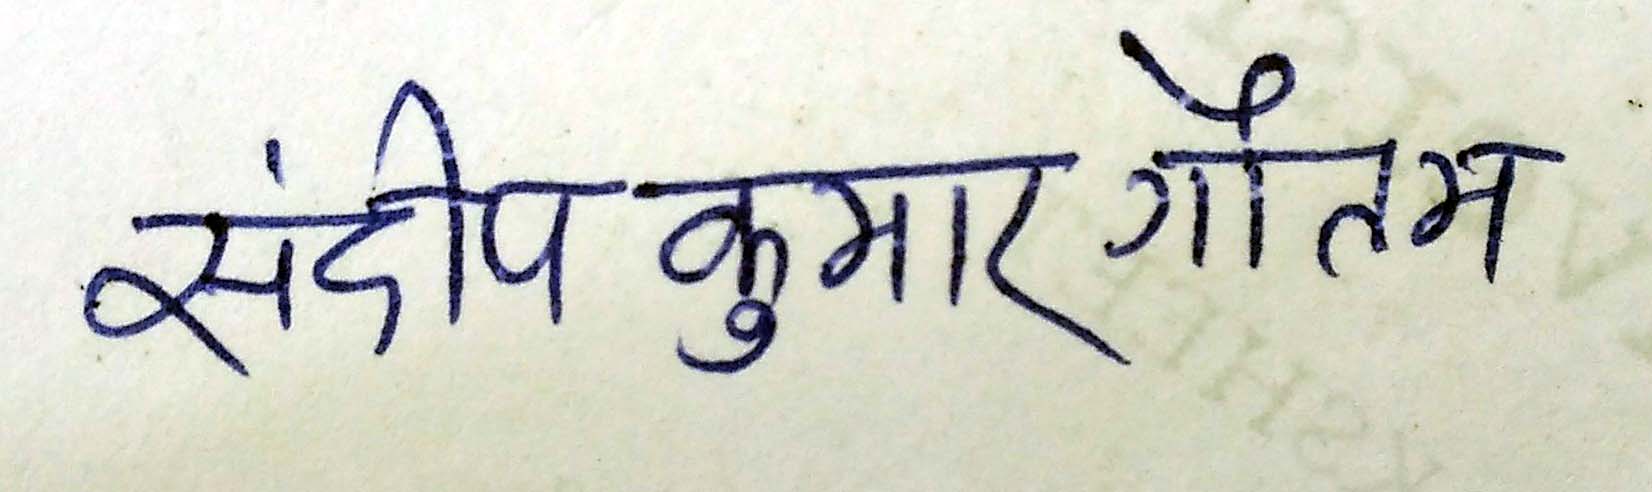 संदीप कुमार गौतम